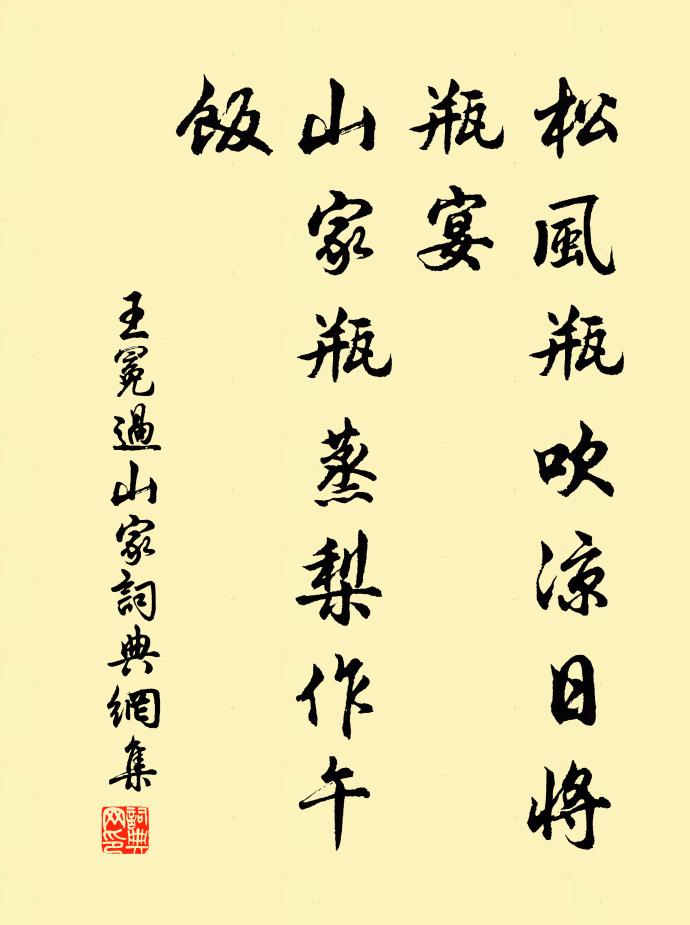 松風瓶吹涼日將
瓶宴
山家瓶蒸梨作午
飯
王冕過山家詞典網集
詞典網印